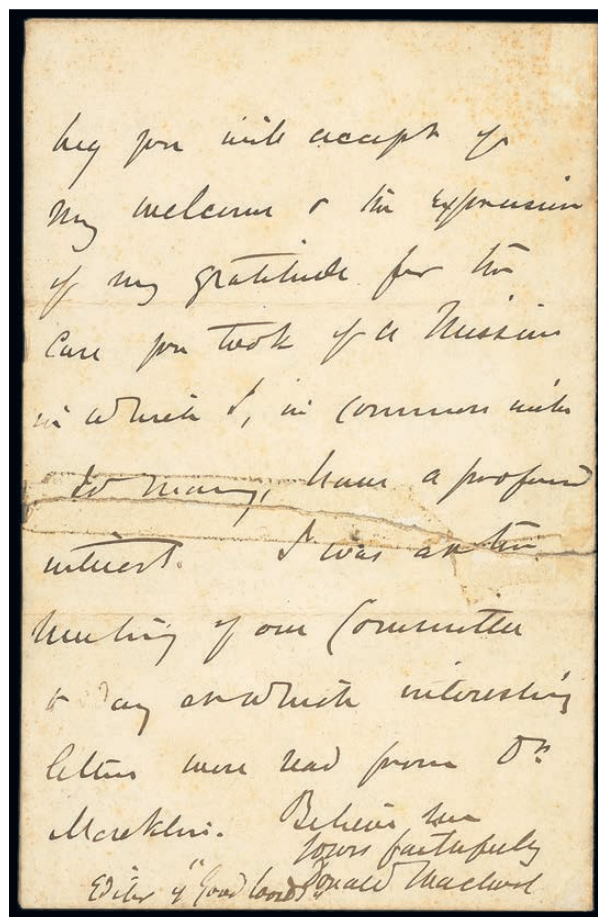 beg you will accept of
my welcome & the expression
of my gratitude for the
care you took of a Mission
in which I, in common with
so many, have a profound
interest. I was at the
meeting of our Committee
to day at which interesting
letters were read from Dr
Believe me
yours faithfully
Donald Macleod
Editor of "Good Words"